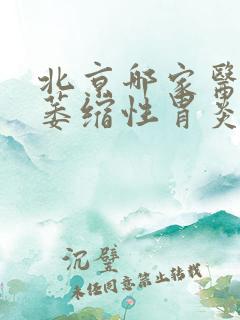 北京那家醫
萎缩性胃炎
沉璧
未经同意禁止转载